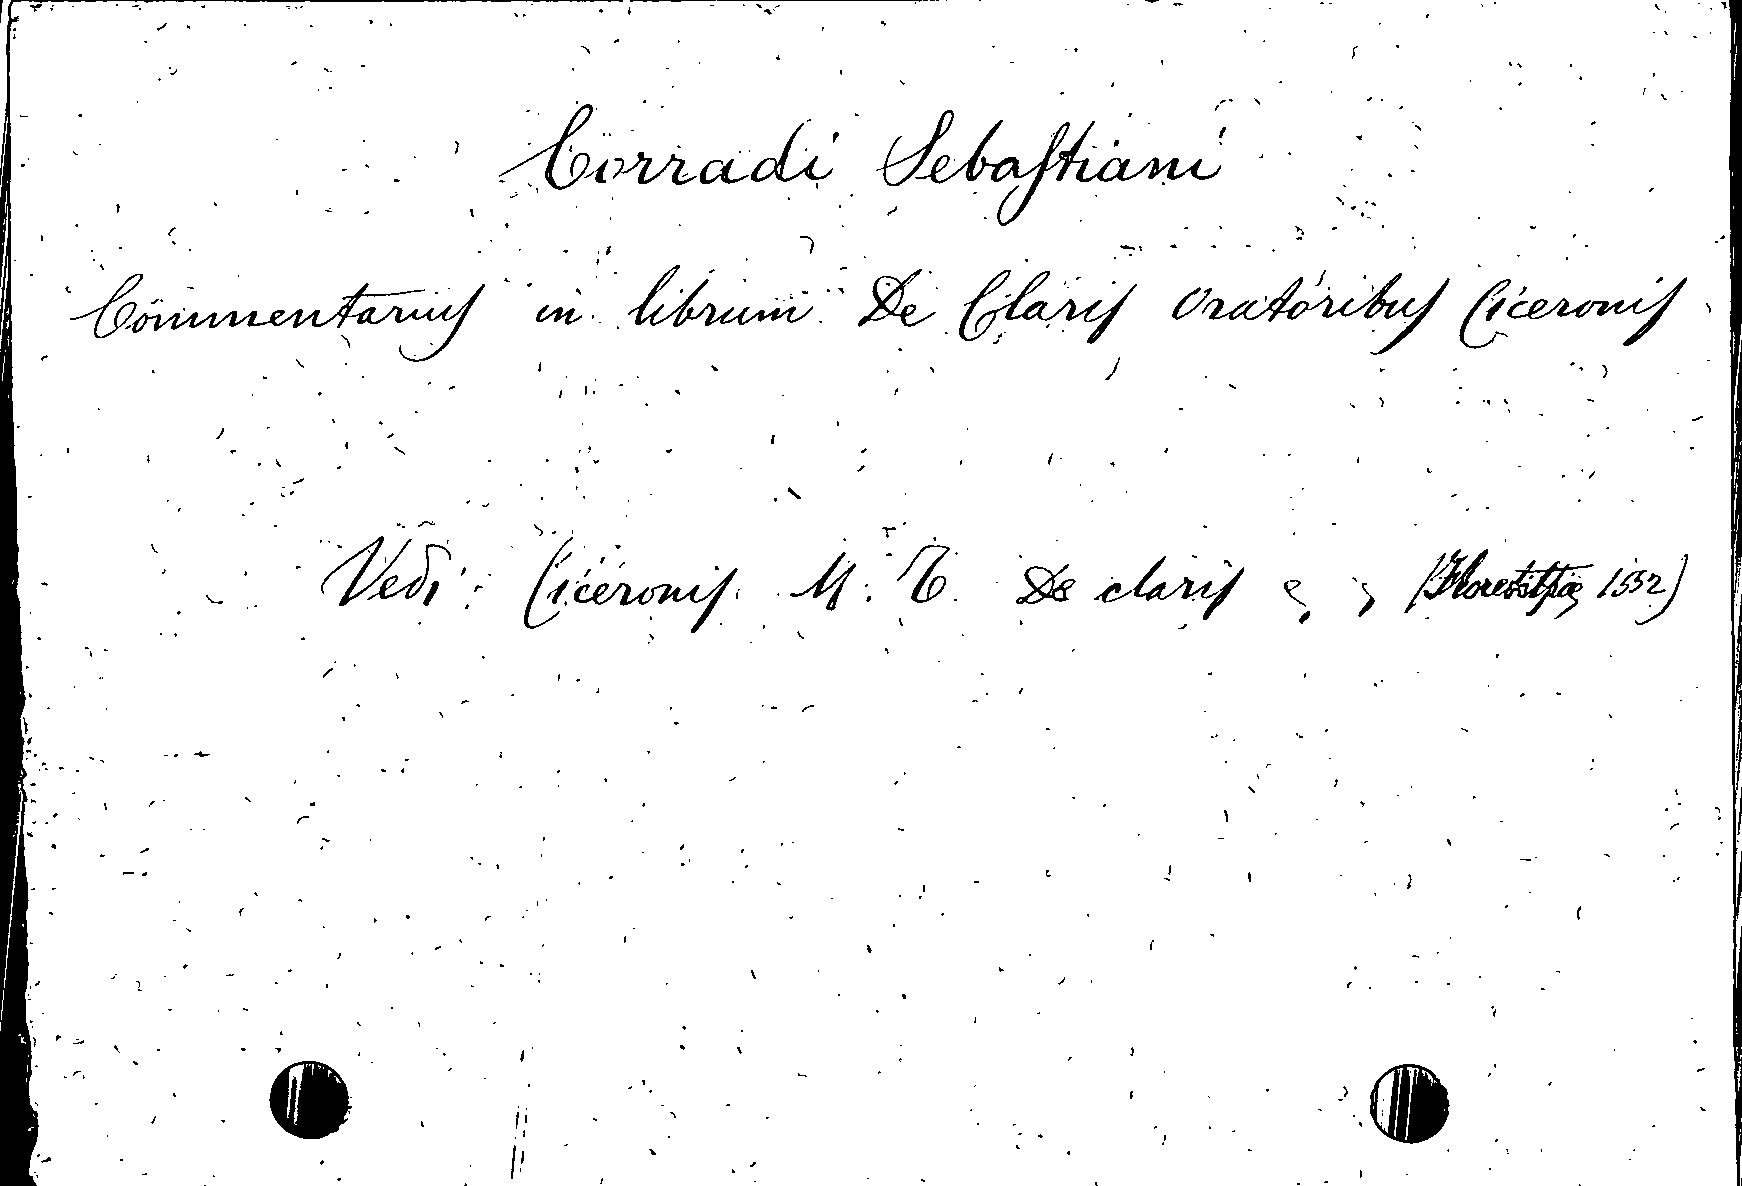 Corradi Sebaſtiani
Commentarius in librum De Claris Oratoribus Ciceronis
Vedi: Ciceronis M. T. De claris , , ( 1552)